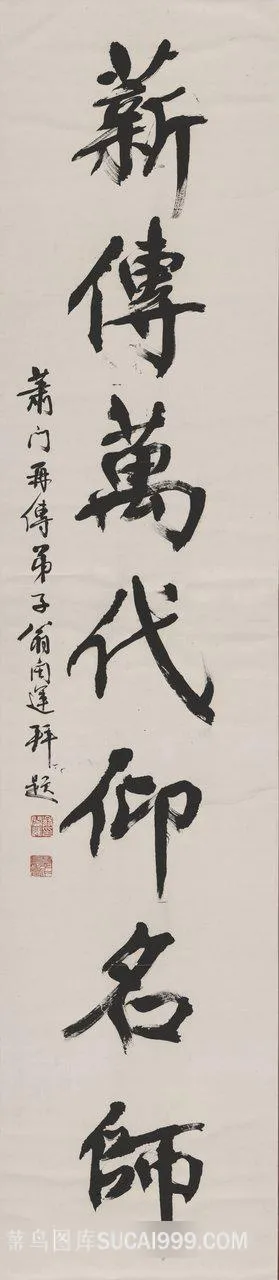 薪傳萬代仰名師
蕭门再傳弟子翁闿運拜题
菜鸟图库SUCAI999.COM